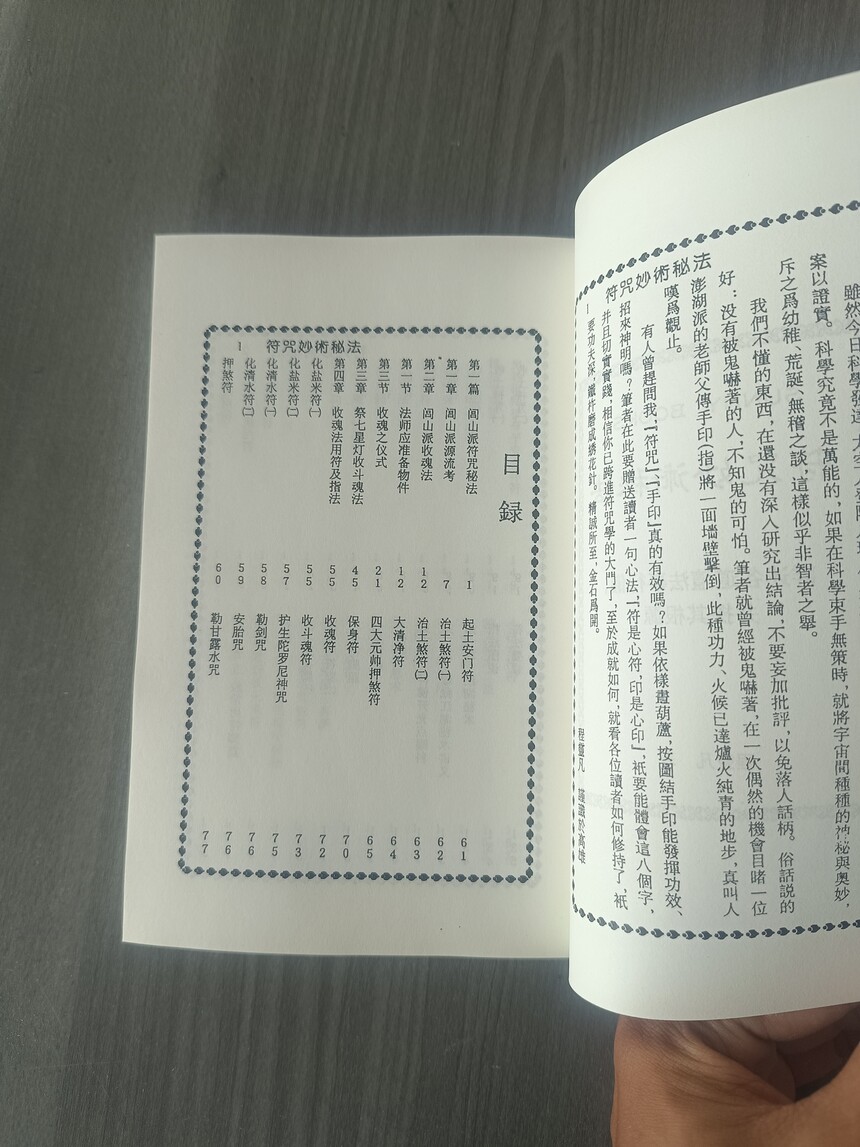 雖然今日科學發達
案以證實。科學究竟不是萬能的,如果在科學束手無策時,就將宇宙間種種的神秘與奧妙,
斥之爲幼稚、荒誕、無稽之談,這樣似乎非智者之舉。
我們不懂的東西,在還没有深入研究出結論,不要妄加批評,以免落人話柄。俗話説的
好:没有被鬼嚇著的人,不知鬼的可怕。筆者就曾經被鬼嚇著,在一次偶然的機會目睹一位
澎湖派的老師父傳手印(指)將一面墻壁擊倒,此種功力、火候已達爐火純青的地步,真叫人
嘆爲觀止。
有人曾趕問我,「符咒」、「手印」真的有效嗎?如果依樣畫葫蘆,按圖結手印能發揮功效、
招來神明嗎?筆者在此要贈送讀者一句心法,「符是心符,印是心印」,祇要能體會這八個字,
并且切實實踐,相信你已跨進符咒學的大門了,至於成就如何,就看各位讀者如何修持了,祇
要功夫深,鐵杵磨成綉花針。精誠所至,金石爲開。
程靈凡 謹識於高雄
符咒妙術秘法
1
目録
第一篇 闾山派符咒秘法 1
第一章 闾山派源流考 7
第二章 闾山派收魂法 12
第一节 法师应准备物件 12
第三节 收魂之仪式 21
第三章 祭七星灯收斗魂法 45
第四章 收魂法用符及指法 55
化盐米符(一) 55
化盐米符(二) 57
化清水符(一) 58
化清水符(二) 59
押煞符 60
起土安门符 61
治土煞符(一) 62
治土煞符(二) 63
大清净符 64
四大元帅押煞符 65
保身符 70
收魂符 72
收斗魂符 73
护生陀罗尼神咒 75
勒剑咒 76
安胎咒 76
勒甘露水咒 77
符咒妙術秘法
1